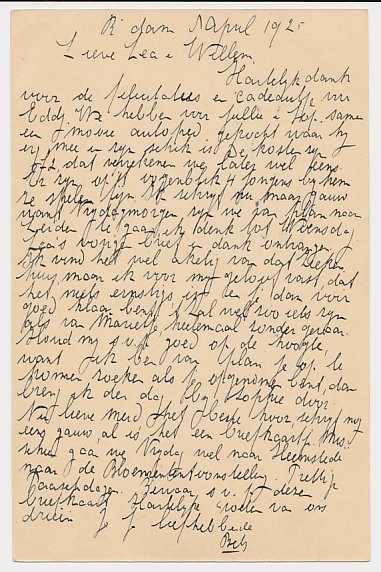 R'dam April 1925
Lieve Lea & Willem,
Hartelijk dank
voor de felicitaties en cadeautje van
Eddy. We hebben voor jullie samen
een mooie autoped gekocht waar hij
erg mee in zijn schik is. De kosten zijn
dat verrekenen we later wel eens.
Er zijn op 't oogenblik 4 jongens bij hem
te spelen. Ik schrijf nu maar gauw
want Vrijdagmorgen zijn we van plan naar
Leiden te gaan, ik denk tot Woensdag
Lea's vorige brief in dank ontvangen.
Ik vind het wel akelig van dat zieken
huis, maar ik voor mij geloof vast, dat
het niets ernstigs is en je dan voor
goed klaar bent. 't Zal wel zoo iets zijn
als van Marietje, heelemaal zonder gevaar.
Houd mij s.v.p. goed op de hoogte,
want ik ben van plan je op te
komen zoeken als je opgenomen bent, dan
breng ik den dag bij Sophie door.
Nu lieve meid, het beste hoor, schrijf mij
eens gauw, al is het een briefkaartje. Mis-
schien gaan we Vrijdag wel naar Heemstede
naar de Bloemententoonstelling. Prettige
Paaschdagen. Bewaar s.v.p. deze
briefkaart. Hartelijke groeten van ons
drieën Je liefhebbende
Bets